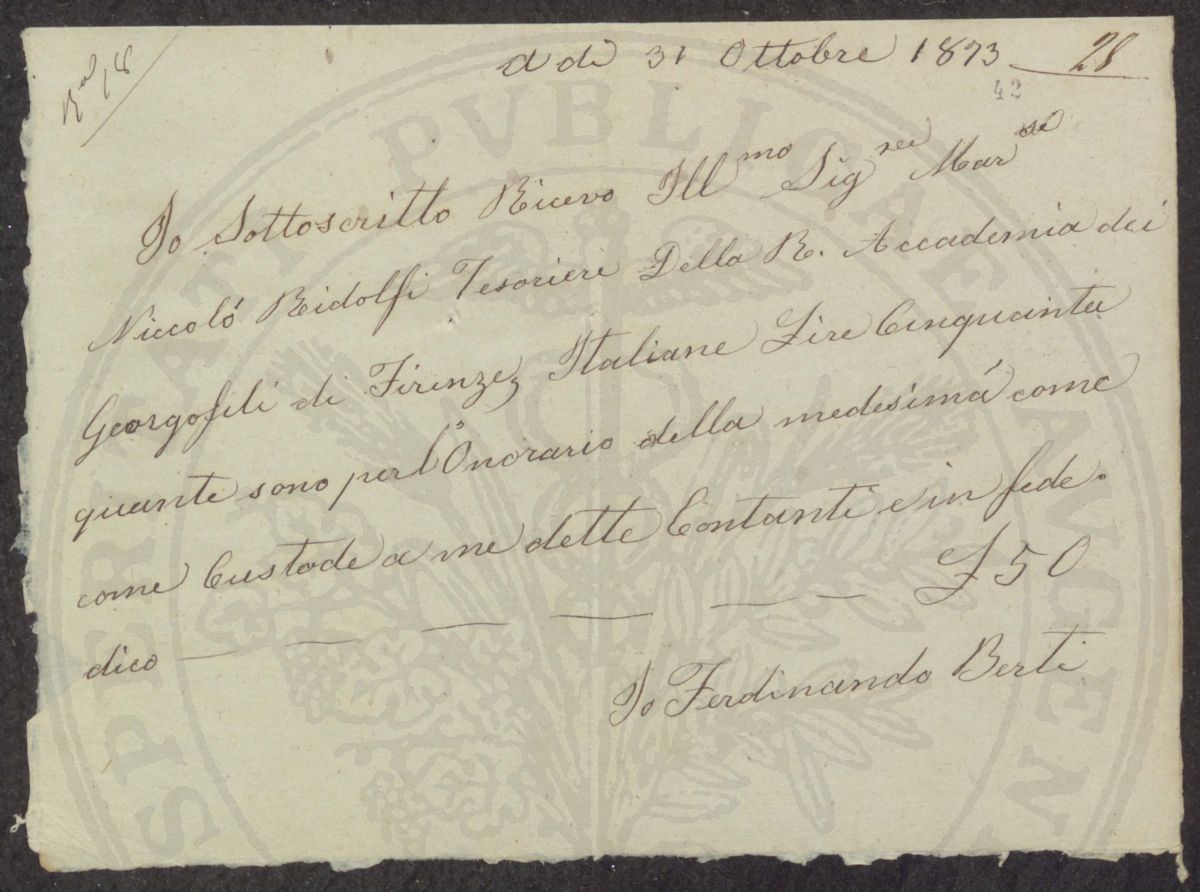 a dì 31 Ottobre 1873 28
42
Io Sottoscritto Ricevo Ill mo Sig Mar
Niccoló Ridolfi Tesoriere Della R. Accademia dei
Georgofili di Firenze, Italiane Lire Cinquanta
quante sono per l'Onorario della medesimá come
come Custode a me dette Contanti e in fede.
dico — — — — — — £ 50
Io Ferdinando Berti
PVBLICAE AVGEN
SPERITATI